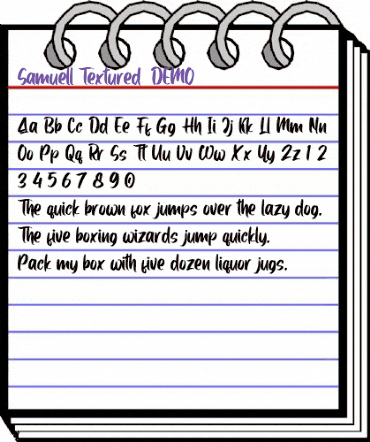 Samuell Textured DEMO
Aa Bb Cc Dd Ee Ff Gg Hh Ii Jj Kk Ll Mm Nn
Oo Pp Qq Rr Ss Tt Uu Vv Ww Xx Yy Zz 1 2
3 4 5 6 7 8 9 0
The quick brown fox jumps over the lazy dog.
The five boxing wizards jump quickly.
Pack my box with five dozen liquor jugs.